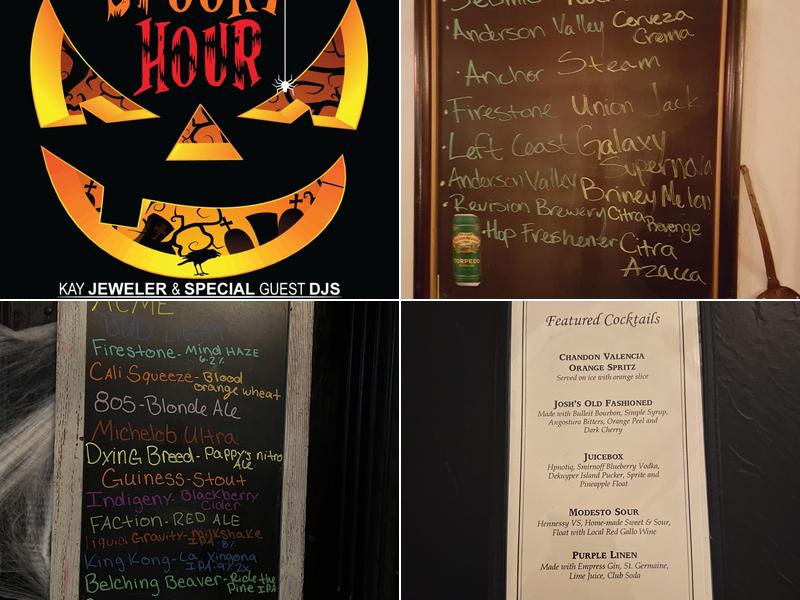 SPOOKY
HOUR
KAY JEWELER & SPECIAL GUEST DJS
Anderson Valley Cerveza
Crema
Anchor Steam
Firestone Union Jack
Left Coast Galaxy
Supernova
Anderson Valley Briney Melon
Revision Brewery Citra
Revenge
Hop Freshener Citra
Azacca
TORPEDO
ACME
BUD LIGHT
Firestone- Mind HAZE
6.2%
Cali Squeeze- Blood
orange wheat
805-Blonde Ale
Michelob Ultra
Dying Breed- Pappy's nitro
Ale
Guiness-Stout
Indigeny- Blackberry
Cider
FACTION-RED ALE
Liquid Gravity-milkshake
IPA
King Kong-La Xingona
IPA
Belching Beaver-Ride the
Pine IPA
Featured Cocktails
CHANDON VALENCIA
ORANGE SPRITZ
Served on ice with orange slice
JOSH'S OLD FASHIONED
Made with Bulleit Bourbon, Simple Syrup,
Angostura Bitters, Orange Peel and
Dark Cherry
JUICEBOX
Hpnotiq, Smirnoff Blueberry Vodka,
Dekuyper Island Pucker, Sprite and
Pineapple Float
MODESTO SOUR
Hennesy VS, Home-made Sweet & Sour,
Float with Local Red Gallo Wine
PURPLE LINEN
Made with Empress Gin, St. Germaine,
Lime Juice, Club Soda